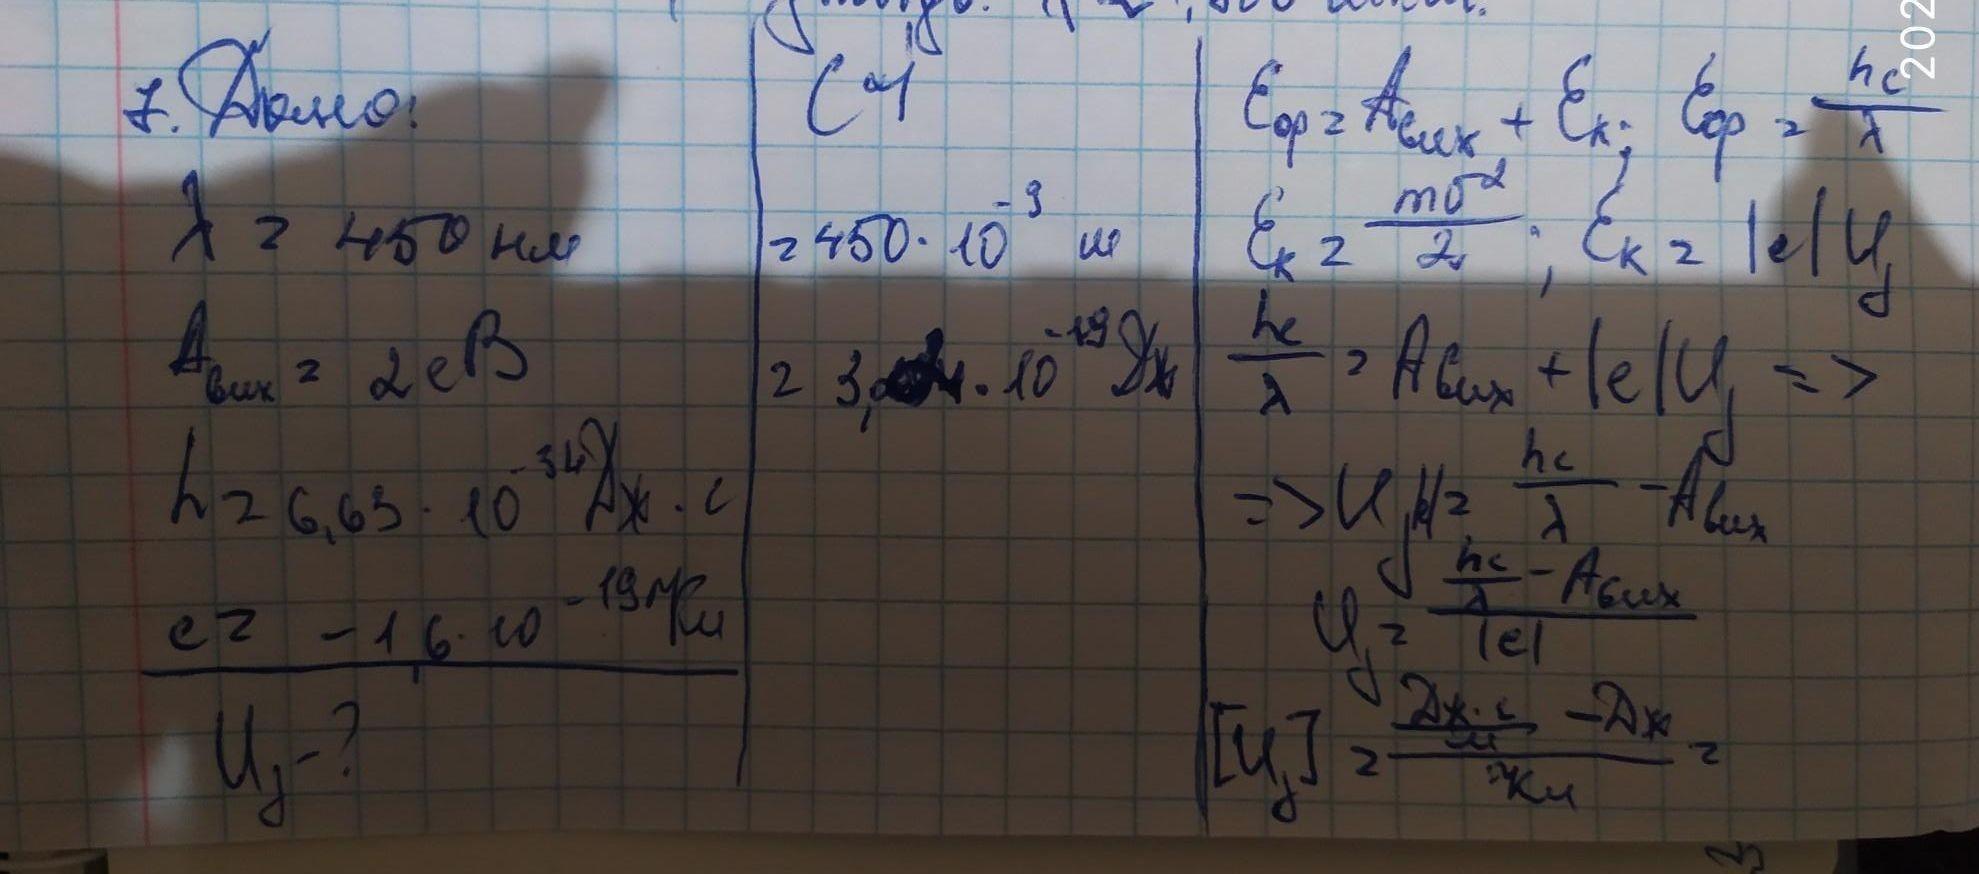 7. Дано:
λ = 450 нм
Aвих = 2 еВ
h = 6,63 · 10^-34 Дж · с
e = -1,6 · 10^-19 Кл
Uз - ?
СІ
= 450 · 10^-9 м
= 3, · 10^-19 Дж
Eф = Aвих + Eк; Eф = hc/λ
Eк = mv²/2; Eк = |e|Uз
hc/λ = Aвих + |e|Uз =>
=> Uз = hc/λ - Aвих
Uз = (hc/λ - Aвих)/|e|
[Uз] = (Дж·с/м - Дж)/Кл =
202